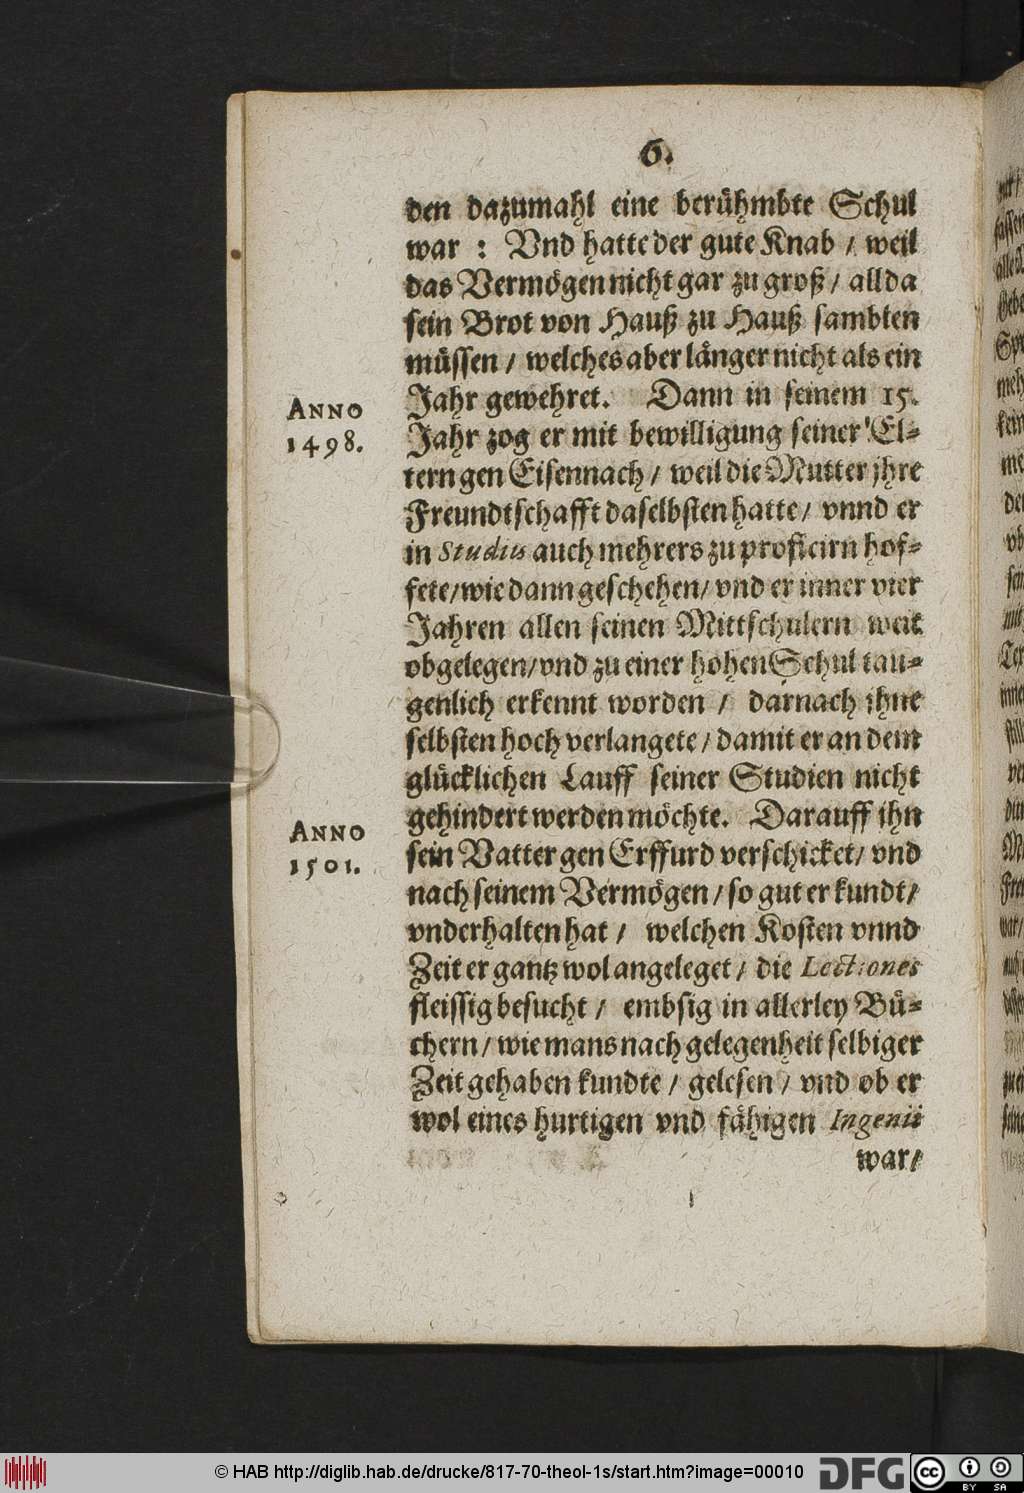 6.
den dazumahl eine berühmbte Schul
war : Vnd hatte der gute Knab / weil
das Vermögen nicht gar zu groß / allda
sein Brot von Hauß zu Hauß samblen
müssen / welches aber länger nicht als ein
Jahr gewehret. Dann in seinem 15.
ANNO
1498.
Jahr zog er mit bewilligung seiner El-
tern gen Eisennach / weil die Mutter jhre
Freundtschafft daselbsten hatte / vnnd er
in Studiis auch mehrers zu proficirn hof-
fete / wie dann geschehen / vnd er inner vier
Jahren allen seinen Mittschulern weit
obgelegen / vnd zu einer hohen Schul tau-
genlich erkennt worden / darnach jhne
selbsten hoch verlangete / damit er an dem
glücklichen Lauff seiner Studien nicht
gehindert werden möchte. Darauff jhn
ANNO
1501.
sein Vatter gen Erffurd verschicket / vnd
nach seinem Vermögen / so gut er kundt /
vnderhalten hat / welchen Kosten vnnd
Zeit er gantz wol angeleget / die Lectiones
fleissig besucht / embsig in allerley Bü-
chern / wie mans nach gelegenheit selbiger
Zeit gehaben kundte / gelesen / vnd ob er
wol eines hurtigen vnd fähigen Ingenii
war /
© HAB http://diglib.hab.de/drucke/817-70-theol-1s/start.htm?image=00010
DFG
cc BY SA